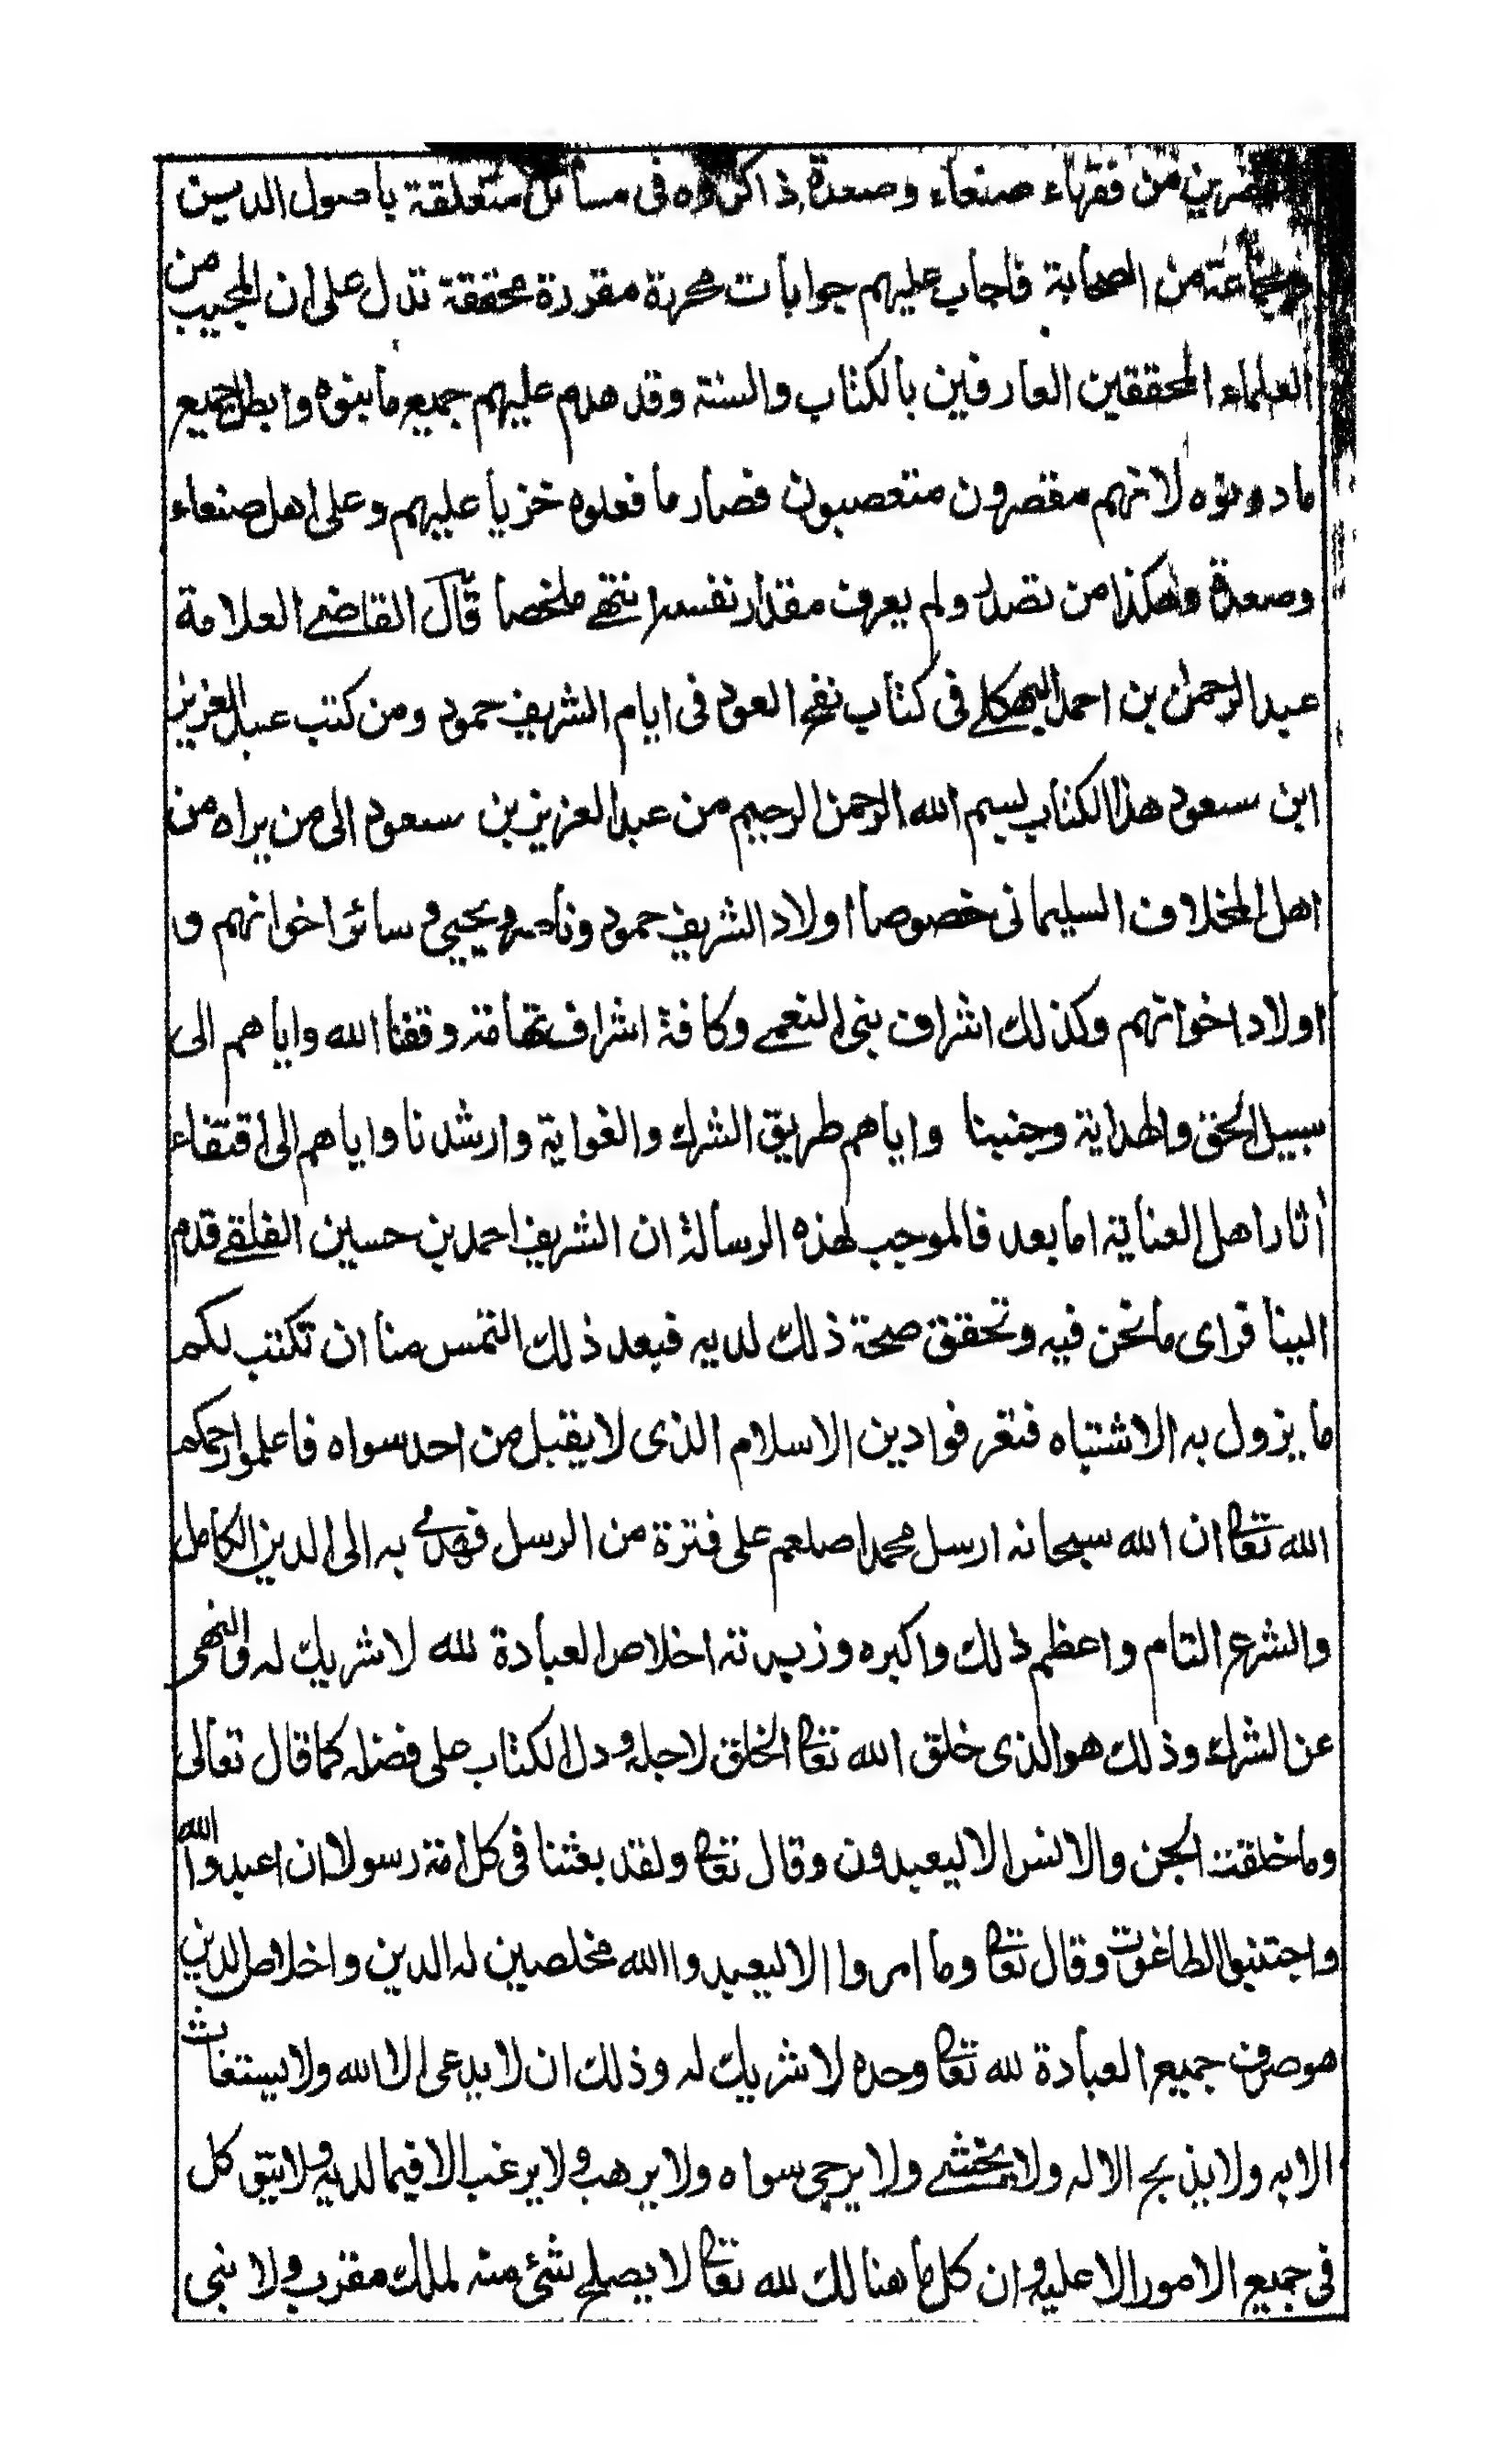 من فقهاء صنعاء وصعدة ذاكروه فى مسائل متعلقة باصول الدين
من الصحابة فاجاب عليهم جوابات محررة مقررة محققة تدل على ان المجيب من
العلماء المحققين العارفين بالكتاب والسنة وقد هدم عليهم جميع ما بنوه وابطل جميع
ما دونوه لانهم مقصرون متعصبون فصار ما فعلوه خزيا عليهم وعلى اهل صنعاء
وصعدة وهكذا من تصدر ولم يعرف مقدار نفسه انتهى ملخصا قال القاضے العلامة
عبد الرحمن بن احمد البهكلے فى كتاب نفح العود فى ايام الشريف حمود ومن كتب عبد العزيز
ابن سعود هذا الكتاب بسم الله الرحمن الرحيم من عبد العزيز بن سعود الى من يراه من
اهل المخلاف السليمانى خصوصا اولاد الشريف حمود وناصر ويحيى و سائر اخوانهم و
اولاد اخوانهم وكذلك اشراف بنى النعمے وكافة اشراف تهامة وقفنا الله واياهم الى
سبيل الحق والهداية وجنبنا واياهم طريق الشرك والغواية وارشدنا واياهم الى اقتفاء
أثار اهل العناية اما بعد فالموجب لهذه الرسالة ان الشريف احمد بن حسين الفلقے قدم
الينا فراى ما نحن فيه وتحقق صحة ذلك لديه فبعد ذلك التمس منا ان تكتب لكم
ما يزول به الاشتباه فتعرفوا دين الاسلام الذى لا يقبل من احد سواه فاعلموا رحمكم
الله تعا ان الله سبحانه ارسل محمدا صلعم على فترة من الرسل فهدے به الى الدين الكامل
والشرع التام واعظم ذلك واكبره وزبدته اخلاص العبادة لله لا شريك له والنهى
عن الشرك وذلك هو الذى خلق الله تعا الخلق لاجله ودل الكتاب على فضله كما قال تعالى
وما خلقت الجن والانس الا ليعبدون وقال تعا ولقد بعثنا فى كل امة رسولا ان اعبدوا الله
واجتنبوا الطاغوت وقال تعا وما امروا الا ليعبدوا الله مخلصين له الدين واخلاص الدين
هو صرف جميع العبادة لله تعا وحده لا شريك له وذلك ان لا يدعى الا الله ولا يستغاث
الا به ولا يذبح الا له ولا يخشے ولا يرجى سواه ولا يرهب ولا يرغب الا فيما لديه ولا يتق كل
فى جميع الامور الا عليه وان كل ما هنالك لله تعا لا يصلح شئ منه لملك مقرب ولا نبى